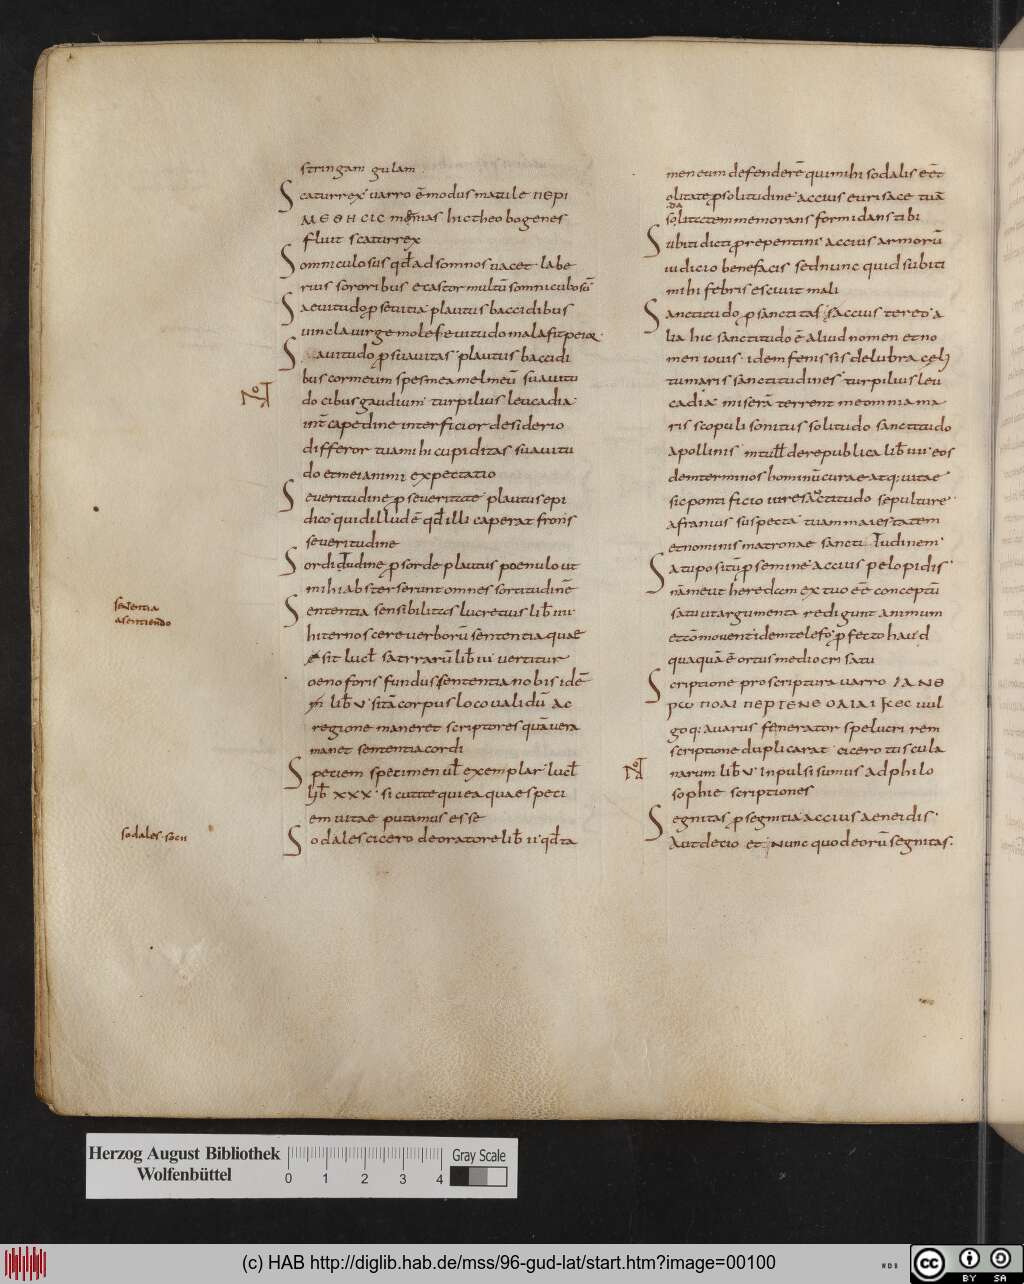 stringam gulam.
Scaturrex varro ē modus matule ΠΕΡΙ
ΜΕΘΗCΙC messias hic theobogenes
fluit scaturrex
Somniculosus qđ ad somnos vacet labe
rius sororibus ecastor multū somniculosū
Saevitudo p̱ sevitia plautus baccidibus
vincla virge mole sevitudo mala fit peior
Suavitudo p̱ suavitas plautus baccidi
bus cor meum spes mea mel meū suavitu
do cibus gaudium turpilius leucadia
int̄capedine interficior desiderio
differor tu a mihi cupiditas suavitu
do et mei animi expectatio
Severitudine p̱ severitate plautus epi
dico quid illud ē qđ illi caperat frons
severitudine
Sorditudine p̱ sorde plautus poenulo ut
mihi absterserunt omnes sortitudinē
sententia
a sentiendo
Sententia sensibilitas lucretius liƀ iiii
hiternoscere verborū sententia quae
sit lucł satrrarū liƀ iii vertitur
oenoforis fundus sententia nobis idē
m̄ liƀ v sitā corpus loco validū ac
regione maneret scriptores quā vera
manet sententia cordi
Speciem specimen vł exemplar lucł
liƀ xxx si cutite quie a quae speci
em vitae putamus esse
sodales socii
Sodales cicero de oratore liƀ ii qđ ta
men eum defenderē qui mihi sodalis eēt
olitate p̱ solitudine accius eurisace tuā
solitatem memorans formidans tibi
Subiti dicti p̱ repentini accius armorū
iudicio benefacis sed nunc quid subiti
mihi febris escivit mali
Sanctitudo p̱ sanctitas accius tereo a
lia hic sanctitudo ē aliud nomen et no
men iovis idem fenissis delubra celi
tumaris sanctitudines turpilius leu
cadia miserā terrent me omnia ma
ris scopuli sonitus solitudo sanctitudo
apollinis m tułł de republica liƀ iiii eos
dem terminos hominū curae atq; vitae
sic pontificio iure sanctitudo sepulture
afranius suspecta tuam maiestatem
et nominis matronae sanctitudinem
Satu positū p̱ semine accius pelopidis
nā me ut heredem ex tuo eēt conceptū
satu ut argumenta redigunt animum
et cōmovent idem telefo p̱fecto haud
quaquā ē ortus mediocri satu
Scriptione pro scriptura varro ΙΑΝΕ
ΡΩ ΠΟΛΙ ΠΕΡΙΓΕΝΕΘΛΙΑΙΚΕC vul
go q; avarus fenerator spe lucri rem
scriptione duplicarat cicero tuscula
narum liƀ v inpulsi sumus ad philo
sophie scriptiones
Segnitas p̱ segnitia accius aeneidis
Aut decio et nunc quo deorū segnitas.
Herzog August Bibliothek
Wolfenbüttel
Gray Scale
0 1 2 3 4
(c) HAB http://diglib.hab.de/mss/96-gud-lat/start.htm?image=00100
WDB
cc BY SA